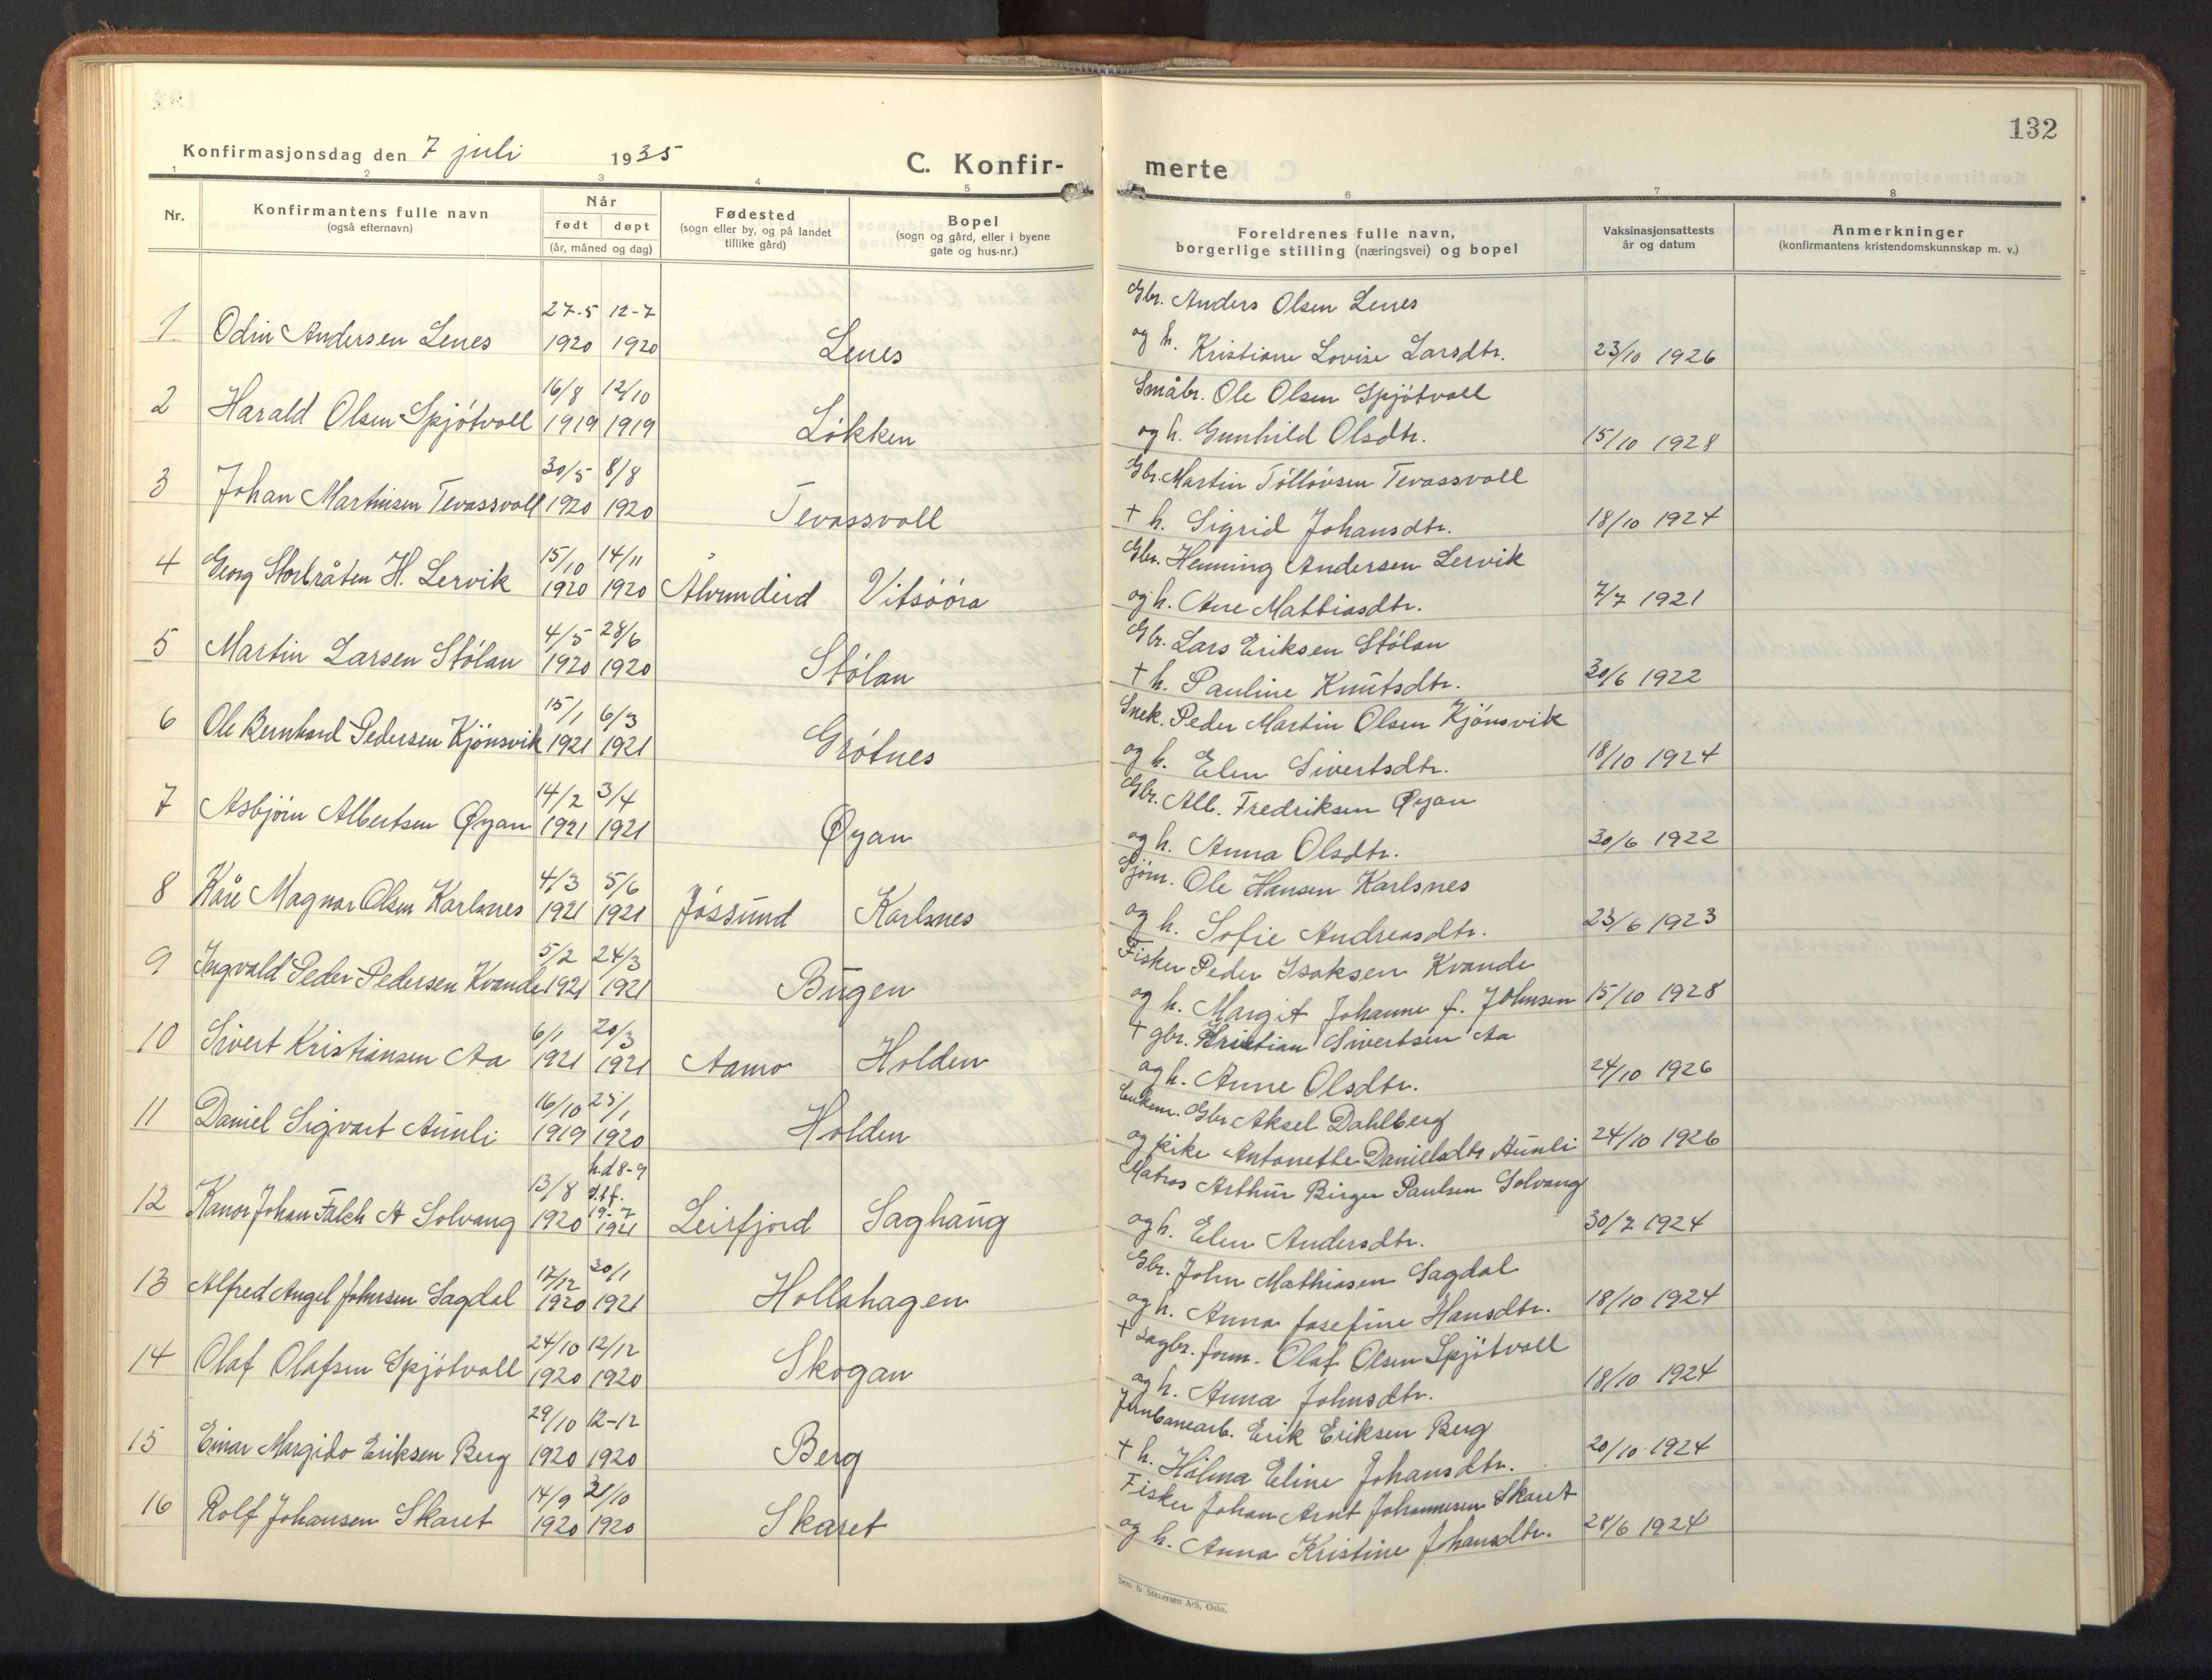 132
Konfirmasjonsdag den 7 juli 1935
C. Konfir- merte
1 2 3 4 5 6 7 8
Nr.
Konfirmantens fulle navn
(også efternavn)
Når
født døpt
(år, måned og dag)
Fødested
(sogn eller by, og på landet
tillike gård)
Bopel
(sogn og gård, eller i byene
gate og hus-nr.)
Foreldrenes fulle navn,
borgerlige stilling (næringsvei) og bopel
Vaksinasjonsattests
år og datum
Anmerkninger
(konfirmantens kristendomskunnskap m. v.)
27-5 12-7 Gbr. Anders Olsen Lenes
1 Odin Andersen Lenes 1920 1920 Lenes og h. Kristiane Lovise Larsdtr. 23/10 1926
16/8 12/10 Småbr. Ole Olsen Spjøtvoll
2 Harald Olsen Spjøtvoll 1919 1919 Løkken og h. Gunhild Olsdtr. 15/10 1928
30/5 8/8 Gbr. Martin Tølløvsen Tevassvoll
3 Johan Martinsen Tevassvoll 1920 1920 Tevassvoll † h. Sigrid Johansdtr. 18/10 1924
15/10 14/11 Gbr. Henning Andersen Lervik
4 Georg Storbråten H. Lervik 1920 1920 Ålvundeid Vitsøøra og h. Ane Mattiasdtr. 7/7 1921
4/5 28/6 Gbr. Lars Eriksen Stølan
5 Martin Larsen Stølan 1920 1920 Stølan † h. Pauline Knutsdtr. 30/6 1922
15/1 6/3 Snek. Peder Martin Olsen Kjønsvik
6 Ole Bernhard Pedersen Kjønsvik 1921 1921 Grøtnes og h. Elen Sivertsdtr. 18/10 1924
14/2 3/4 Gbr. Alb. Fredriksen Øyan
7 Asbjørn Albertsen Øyan 1921 1921 Øyan og h. Anna Olsdtr. 30/6 1922
4/3 5/6 Sjøm. Ole Hansen Karlsnes
8 Kåre Magnar Olsen Karlsnes 1921 1921 Jøssund Karlsnes og h. Sofie Andreasdtr. 23/6 1923
5/2 24/3 Fisker Peder Isaksen Kvande
9 Ingvald Peder Pedersen Kvande 1921 1921 Bugen og h. Margit Johanne f. Johnsen 15/10 1928
6/1 20/3 † gbr. Kristian Sivertsen Aa
10 Sivert Kristiansen Aa 1921 1921 Aamo Holden og h. Anne Olsdtr. 24/10 1926
16/10 25/1 Enkem. Gbr Aksel Dahlberg
11 Daniel Sigvart Aunli 1919 1920 Holden og pike Antonette Danielsdtr Aunli 24/10 1926
13/8 h.d 8-9 d.t.f. 19-7 Matros Arthur Birger Paulsen Solvang
12 Kanor Johan Falch A Solvang 1920 1921 Leirfjord Saghaug og h. Elen Andersdtr. 30/7 1924
17/12 30/1 Gbr. John Mathiasen Sagdal
13 Alfred Angel Johnsen Sagdal 1920 1921 Hollahagen og h. Anna Josefine Hansdtr. 18/10 1924
24/10 12/12 † sagbr. form. Olaf Olsen Spjøtvoll
14 Olaf Olafsen Spjøtvoll 1920 1920 Skogan og h. Anna Johnsdtr. 18/10 1924
29/10 12-12 Jernbanearb. Erik Eriksen Berg
15 Einar Margido Eriksen Berg 1920 1920 Berg † h. Hilma Eline Johansdtr. 20/10 1924
14/9 31/10 Fisker Johan Arnt Johannesen Skaret
16 Rolf Johansen Skaret 1920 1920 Skaret og h. Anna Kristine Johansdtr. 28/6 1924
Sem & Stenersen A/S, Oslo.